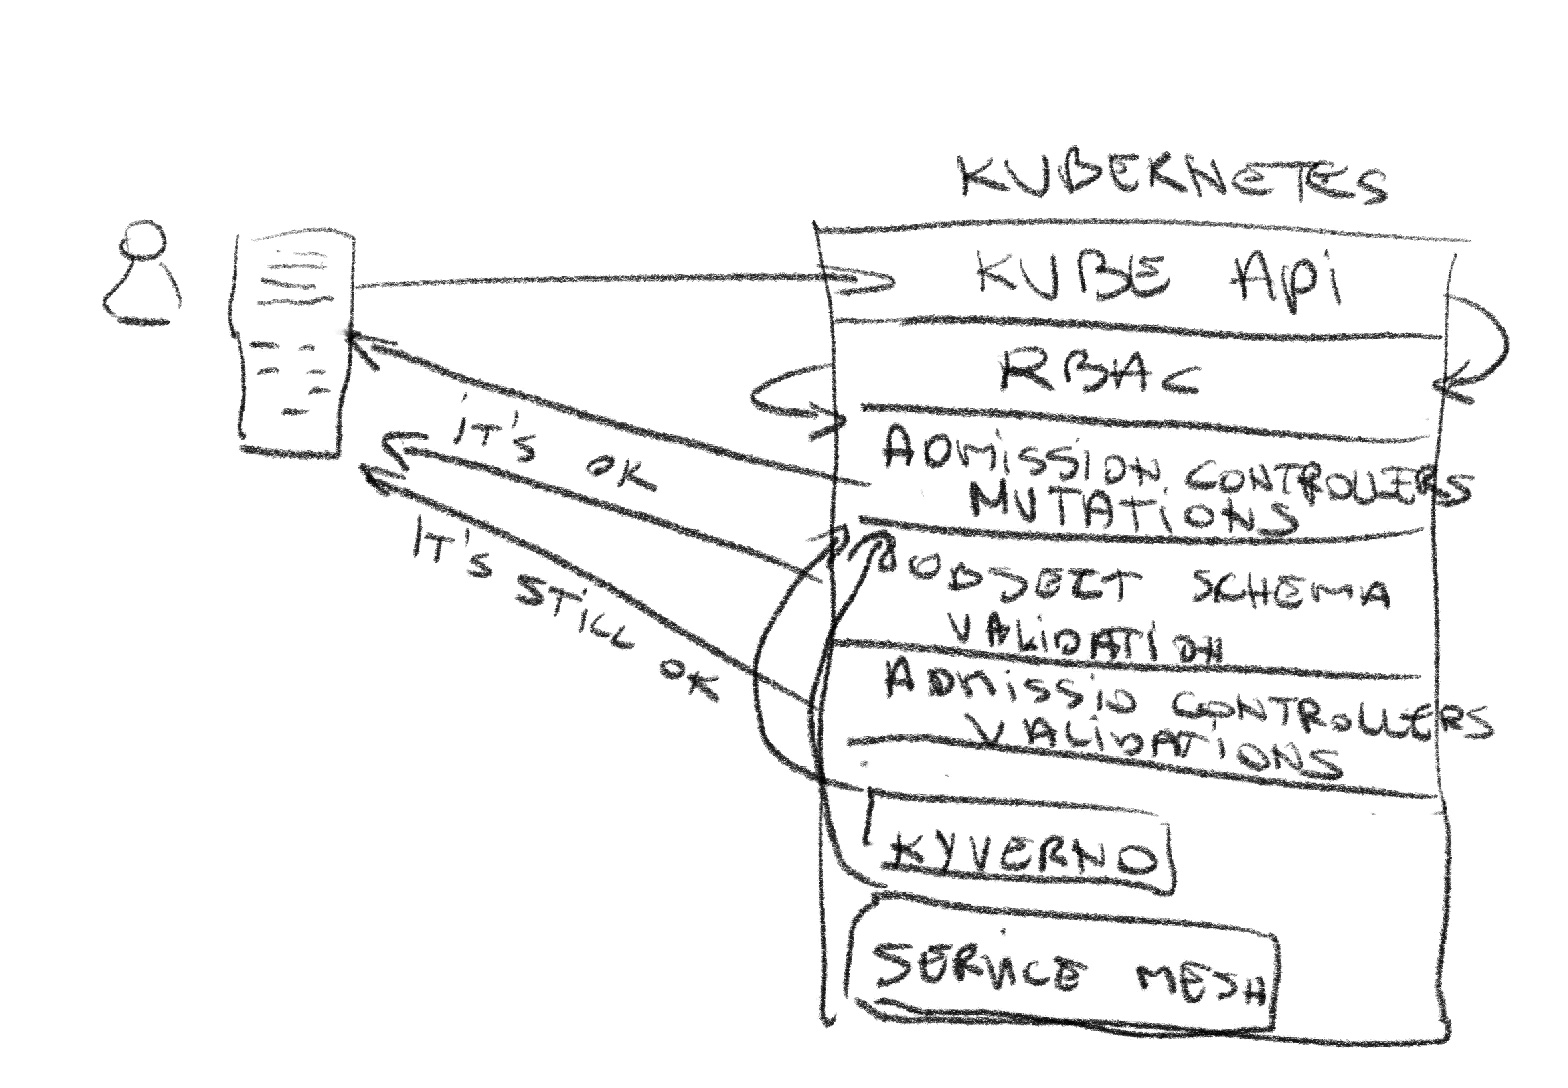 KUBERNETES
KUBE Api
RBAC
ADMISSION CONTROLLERS
MUTATIONS
OBJECT SCHEMA
VALIDATION
ADMISSIO CONTROLLERS
VALIDATIONS
KYVERNO
SERVICE MESH
IT'S OK
IT'S STILL OK